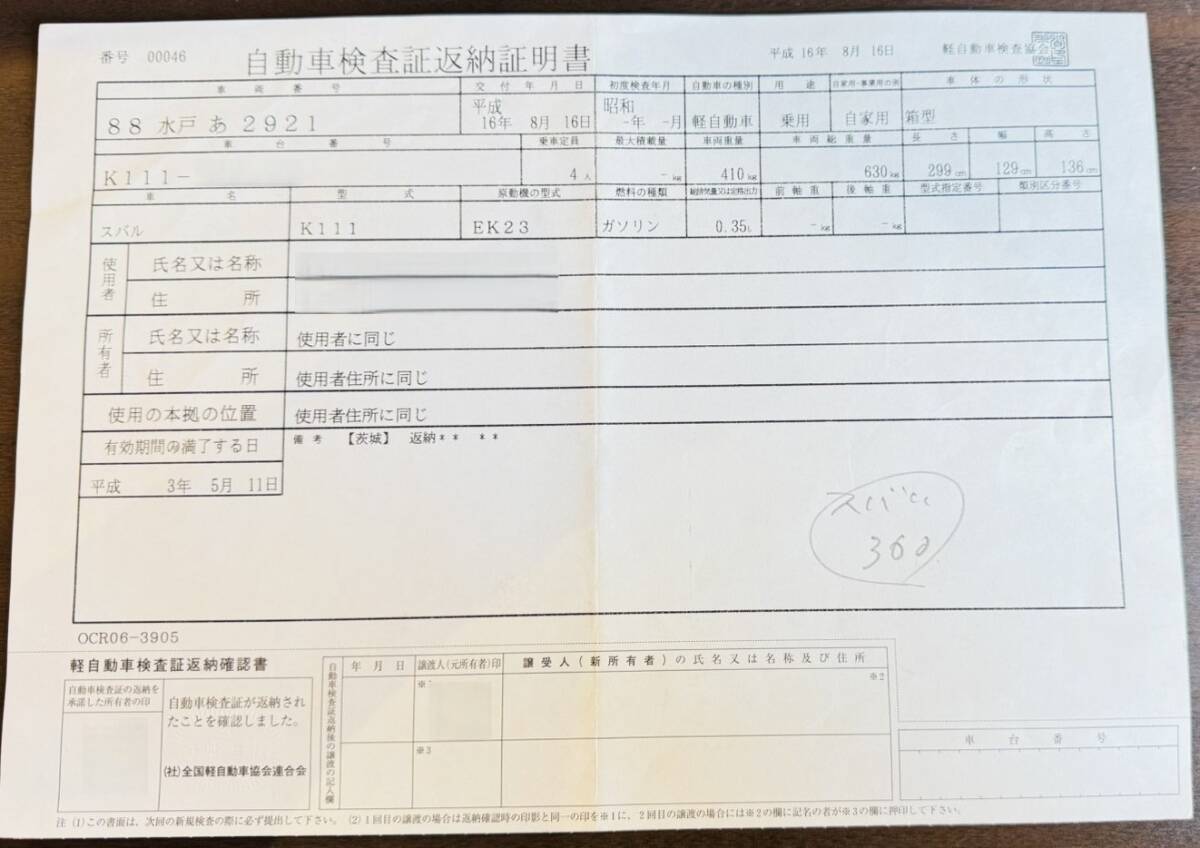 番号 00046
自動車検査証返納証明書
平成 16年 8月 16日
軽自動車検査協会
車両番号 交付年月日 初度検査年月 自動車の種別 用途 自家用・事業用の別 車体の形状
88 水戸 あ 2921 平成 16年 8月 16日 昭和 -年 -月 軽自動車 乗用 自家用 箱型
車台番号 乗車定員 最大積載量 車両重量 車両総重量 長さ 幅 高さ
K111- 4人 -kg 410kg 630kg 299cm 129cm 136cm
車名 型式 原動機の型式 燃料の種類 総排気量又は定格出力 前軸重 後軸重 型式指定番号 類別区分番号
スバル K111 EK23 ガソリン 0.35L -kg -kg
使用者
氏名又は名称
住所
所有者
氏名又は名称 使用者に同じ
住所 使用者住所に同じ
使用の本拠の位置 使用者住所に同じ
有効期間の満了する日
平成 3年 5月 11日
備考 【茨城】 返納** **
スバル
360
OCR06-3905
軽自動車検査証返納確認書
自動車検査証の返納を
承諾した所有者の印
自動車検査証が返納され
たことを確認しました。
(社)全国軽自動車協会連合会
自動車検査証返納後の譲渡の記入欄
年月日 譲渡人(元所有者)印 譲受人(新所有者)の氏名又は名称及び住所
※1 ※2
※3
車台番号
注 (1)この書面は、次回の新規検査の際に必ず提出して下さい。 (2)1回目の譲渡の場合は返納確認時の印影と同一の印を※1に、2回目の譲渡の場合には※2の欄に記名の者が※3の欄に押印して下さい。